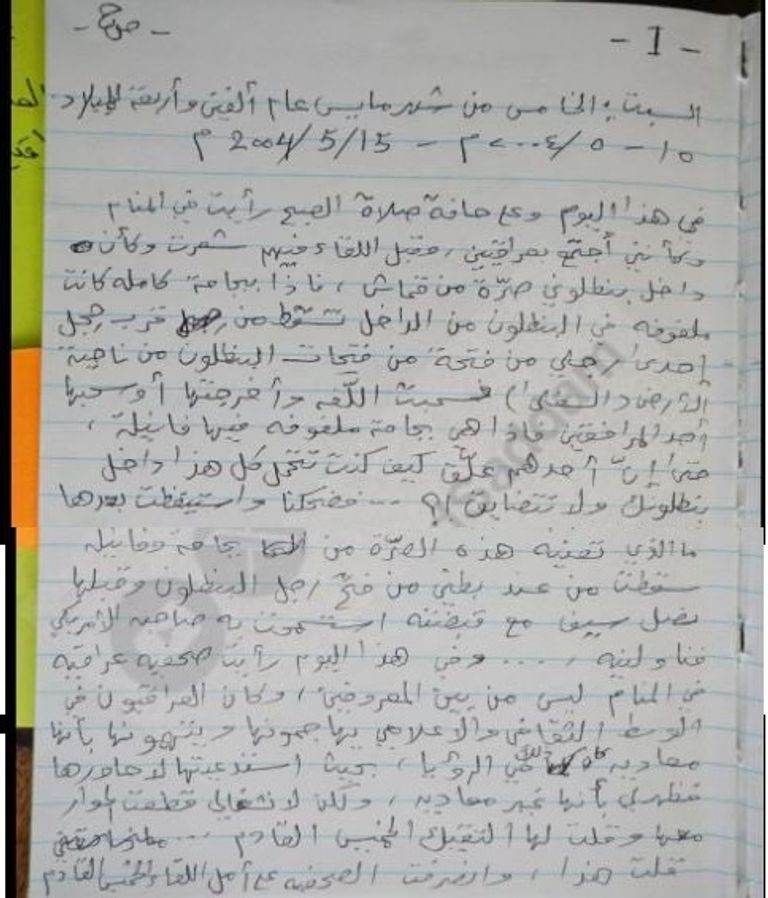 - 1 -
السبت : الخامس من شهر مايس عام ألفين وأربعة للميلاد
١٥ - ٥ /٢٠٠٤ م - 2004/5/15 م
في هذا اليوم وعلى حافة صلاة الصبح رأيت في المنام
وكأنني أجتمع بعراقيين ، وقبل اللقاء فيهم شعرت وكأن
داخل بنطلوني صرّة من قماش ، فإذا بيجامة كاملة كانت
ملفوفه في البنطلون من الداخل تسقط من قرب رجل
إحدى رجلي من فتحة من فتحات البنطلون من ناحية
الأرض ( السفلى ) فسحبت اللّفه وأخرجتها أو سحبها
أحد المرافقين فإذا هي بجامة ملفوفه فيها فانيلة ،
حتى إنّ أحدهم علّق كيف كنت تتحمل كل هذا داخل
بنطلونك ولا تتضايق !؟ ... فضحكنا واستيقظت بعدها
ما الذي تعنيه هذه الصرّة من بجامة وفانيله
سقطت من عند بطني من فتح رجل البنطلون وقبلها
نصل سيف مع قبضته استنجدت به صاحبه الأمريكي
فناولنيه .... وفي هذا اليوم رأيت صحفيه عراقيه
في المنام ليس من بين المعروفين ، وكان العراقيون في
الوسط الثقافي والاعلامي يهاجمونها ويتهمونها بأنها
معاديه في الرؤيا ، بحيث استدعيتها لاحاورها
فظهر لي بأنها غير معاديه ، ولكن لانشغالي قطعت الحوار
معها وقلت لها ألتقيك الخميس القادم ...
قلت هذا ، وانصرفت الصحفيه على أمل اللقاء الخميس القادم